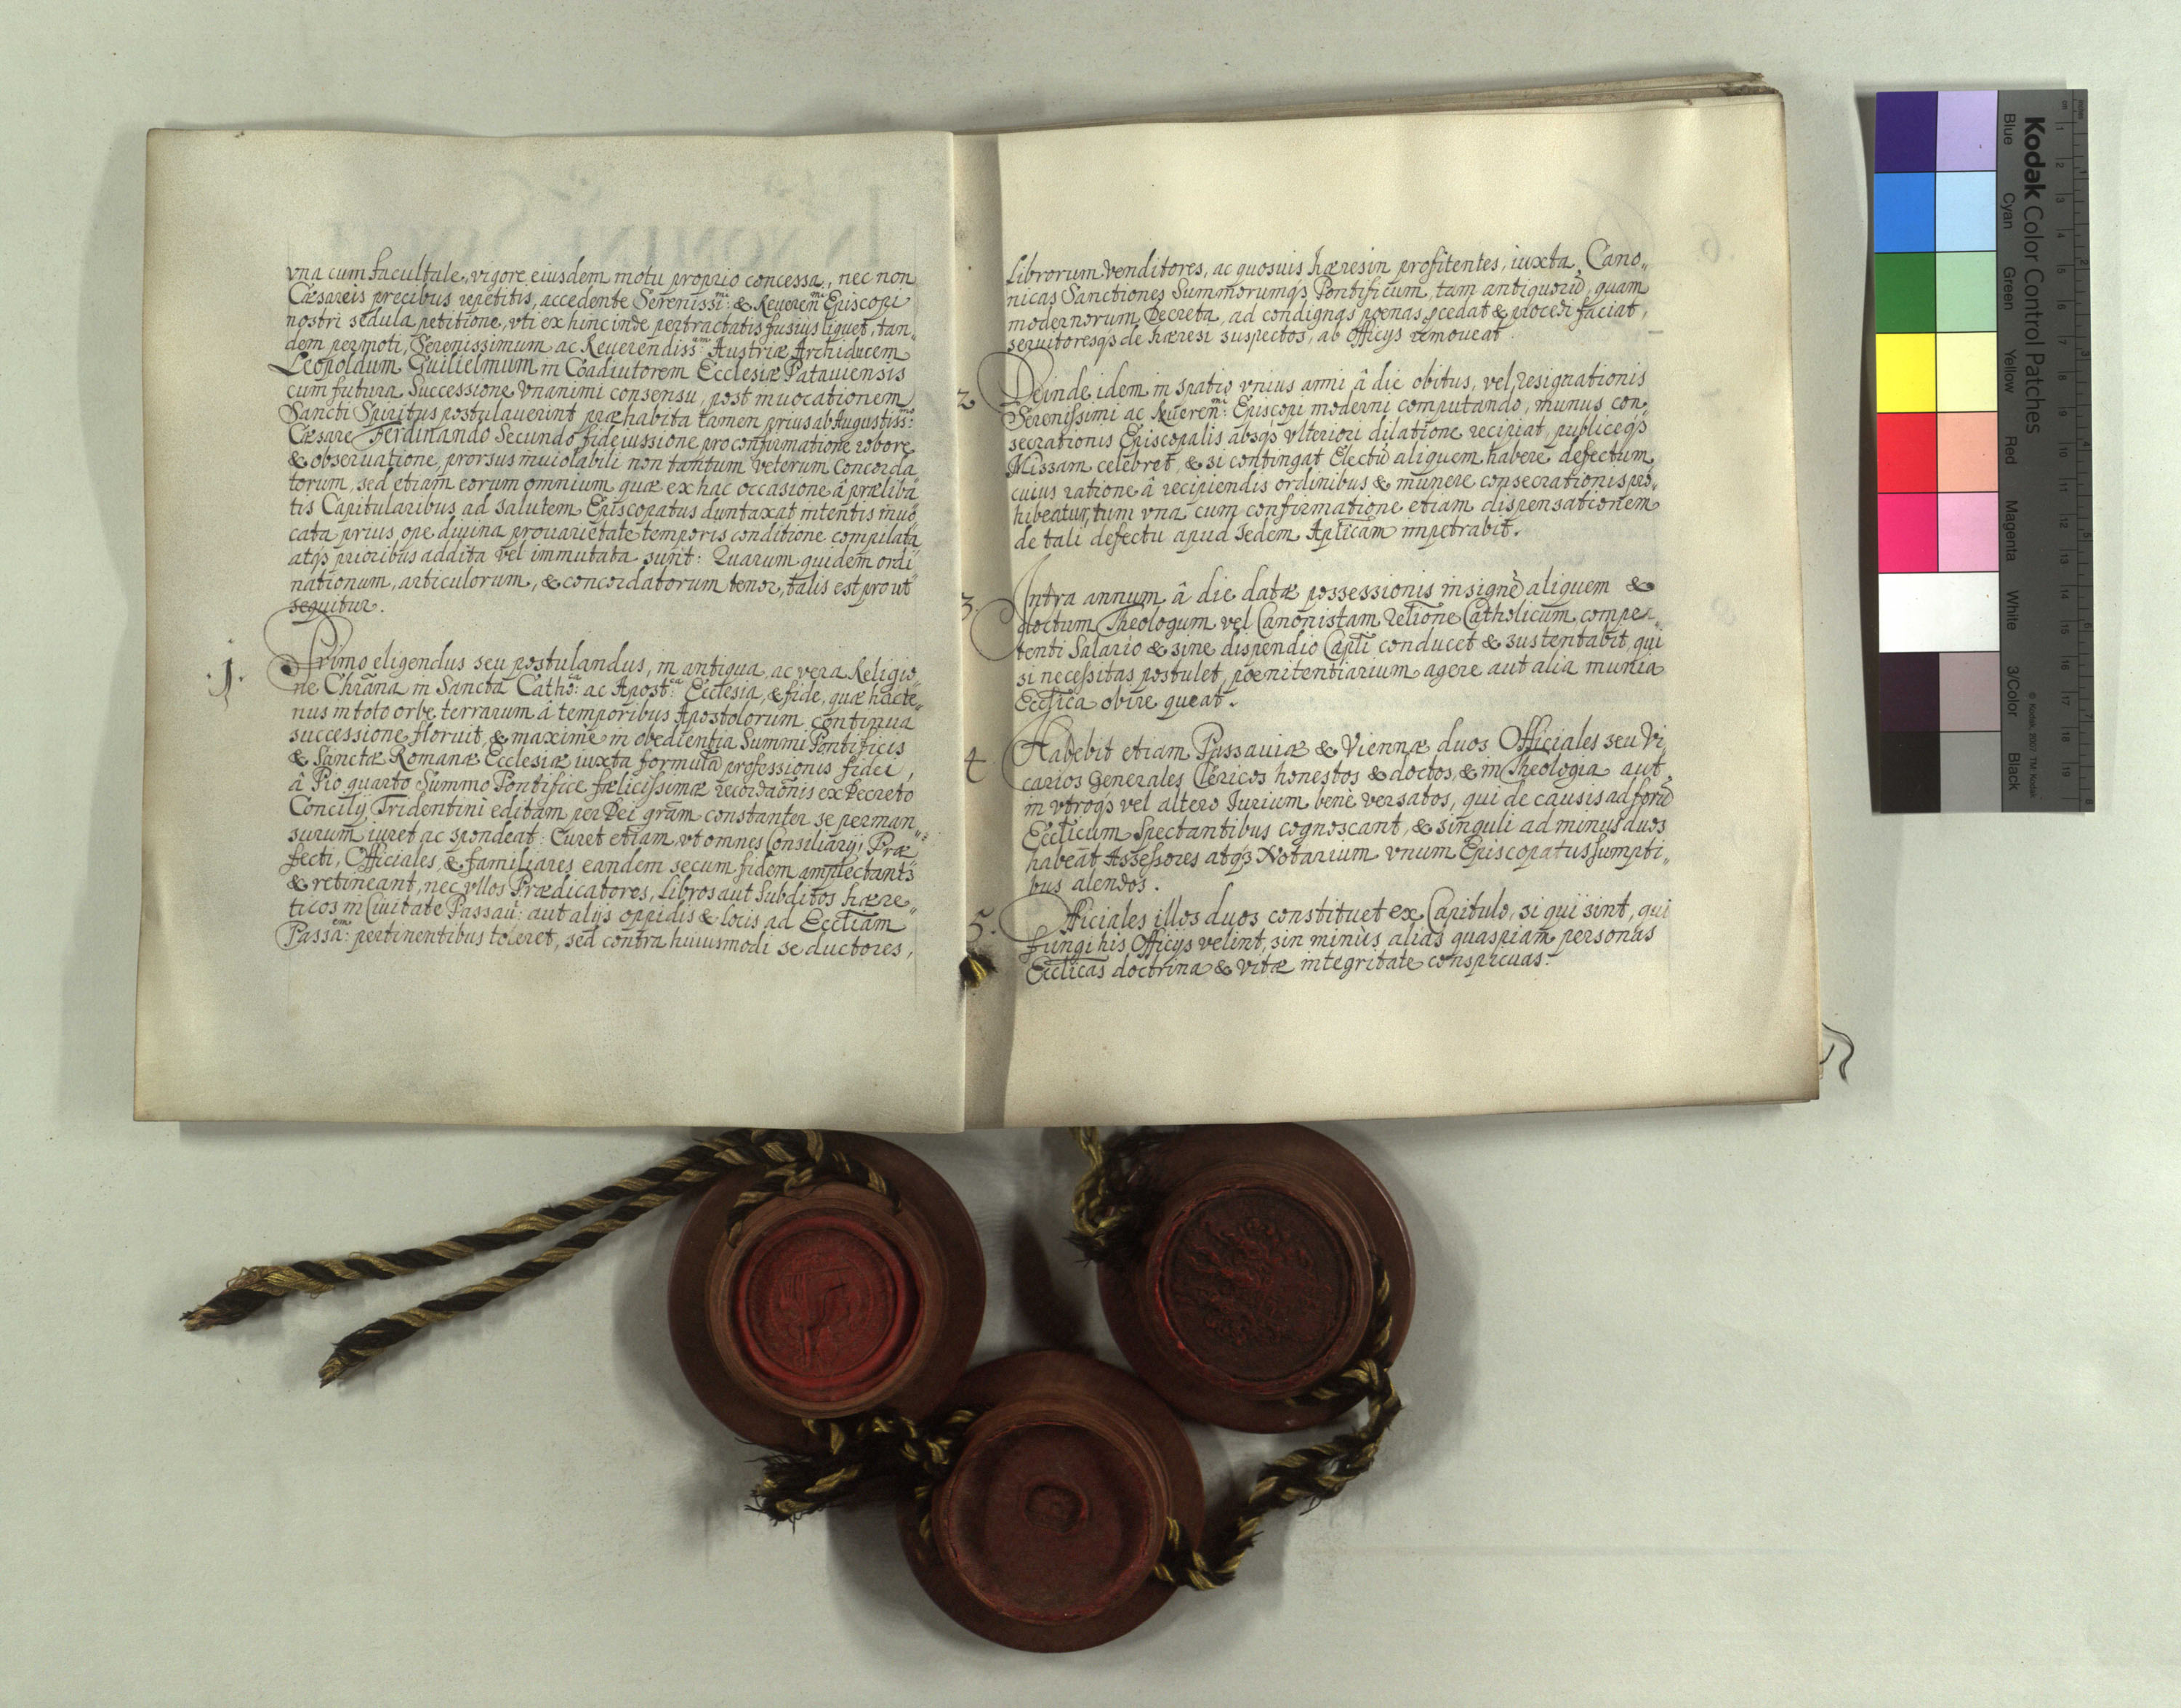 vna cum facultate, vigore eiusdem motu proprio concessa, nec non
Cæsareis precibus repetitis, accedente Serenissi:mi & Reueren:mi Episcopi
nostri sedula petitione, vti ex hinc inde pertractatis fusius liquet, tan„
dem permoti, Serenissimum ac Reuerendiss:am Austriæ Archiducem
Leopoldum Guilielmum in Coadiutorem Ecclesiæ Patauiensis
cum futura Successione vnanimi consensu, post inuocationem
Sancti Spiritus postulauerint præhabita tamen prius ab Augustiss:mo
Cæsare Ferdinando Secundo fideiussione pro confirmatione robore
& obseruatione prorsus inuiolabili non tantum veterum Concorda„
torum, sed etiam eorum omnium quæ ex hac occasione â præliba„
tis Capitularibus ad salutem Episcopatus duntaxat intentis inuo„
cata prius ope diuina pro varietate temporis conditione compilata
atqȝ prioribus addita vel immutata sunt: Quarum quidem ordi„
nationum, articulorum, & concordatorum tenor, talis est prout
sequitur.
.1. Primo eligendus seu postulandus, in antiqua, ac vera Religio„
ne Chrãna in Sancta Cathô:ca ac Apost:ca Ecclesia, & fide, quæ hacte„
nus in toto orbe terrarum â temporibus Apostolorum continua
successione floruit, & maxime in obedientia Summi Pontificis
& Sanctæ Romanæ Ecclesiæ iuxta formulã professionis fidei,
â Pio quarto Summo Pontifice fœlicissimæ recordaõnis ex Decreto
Concilij Tridentini editam per Dei grãm constanter se perman„
surum iuret ac spondeat: Curet etiam vt omnes Consiliarij, Præ„
fecti, Officiales, & familiares eandem secum fidem amplectantȝ
& retineant, nec vllos Prædicatores, Libros aut Subditos hære„
ticos in Ciuitate Passau: aut alijs oppidis & locis ad Eccliam
Passa:em pertinentibus toleret, sed contra huiusmodi seductores,
Librorum venditores, ac quosuis hæresin profitentes, iuxta Cano„
nicas Sanctiones Summorumqȝ Pontificum, tam antiquorũ, quam
modernorum Decreta, ad condignas pœnas ꝓcedat & procedi faciat,
seruitoresqȝ de hæresi suspectos, ab Officijs remoueat.
2. Deinde idem in spatio vnius anni â die obitus, vel resignationis
Serenissimi ac Reueren:mi Episcopi moderni computando, munus con„
secrationis Episcopalis absqȝ vlteriori dilatione recipiat, publiceqȝ
Missam celebret, & si contingat Electũ aliquem habere defectum,
cuius ratione â recipiendis ordinibus & munere consecrationis pro„
hibeatur, tum vna cum confirmatione etiam dispensationem
de tali defectu apud Sedem Aplicam impetrabit.
3. Intra annum â die datæ possessionis insignẽ aliquem &
doctum Theologum vel Canonistam Relione Catholicum, compe„
tenti Salario & sine dispendio Capli conducet & sustentabit, qui
si necessitas postulet, pœnitentiarium agere aut alia munia
Ecclica obire queat.
4. Habebit etiam Passauiæ & Viennæ duos Officiales seu Vi„
carios Generales Clericos honestos & doctos, & in Theologia aut
in vtroqȝ vel altero Iurium benè versatos, qui de causis ad forũ
Ecclicum spectantibus cognoscant, & singuli ad minus duos
habeãt Assessores atqȝ Notarium vnum Episcopatus sumpti„
bus alendos.
5. Officiales illos duos constituet ex Capitulo, si qui sint, qui
fungi his Officijs velint, sin minùs aliàs quaspiam personas
Ecclicas doctrina & vitæ integritate conspicuas.
Kodak Color Control Patches
Blue Cyan Green Yellow Red Magenta White 3/Color Black
© Kodak, 2007 TM: Kodak
cm 1 2 3 4 5 6 7 8 9 10 11 12 13 14 15 16 17 18 19
inches 1 2 3 4 5 6 7 8